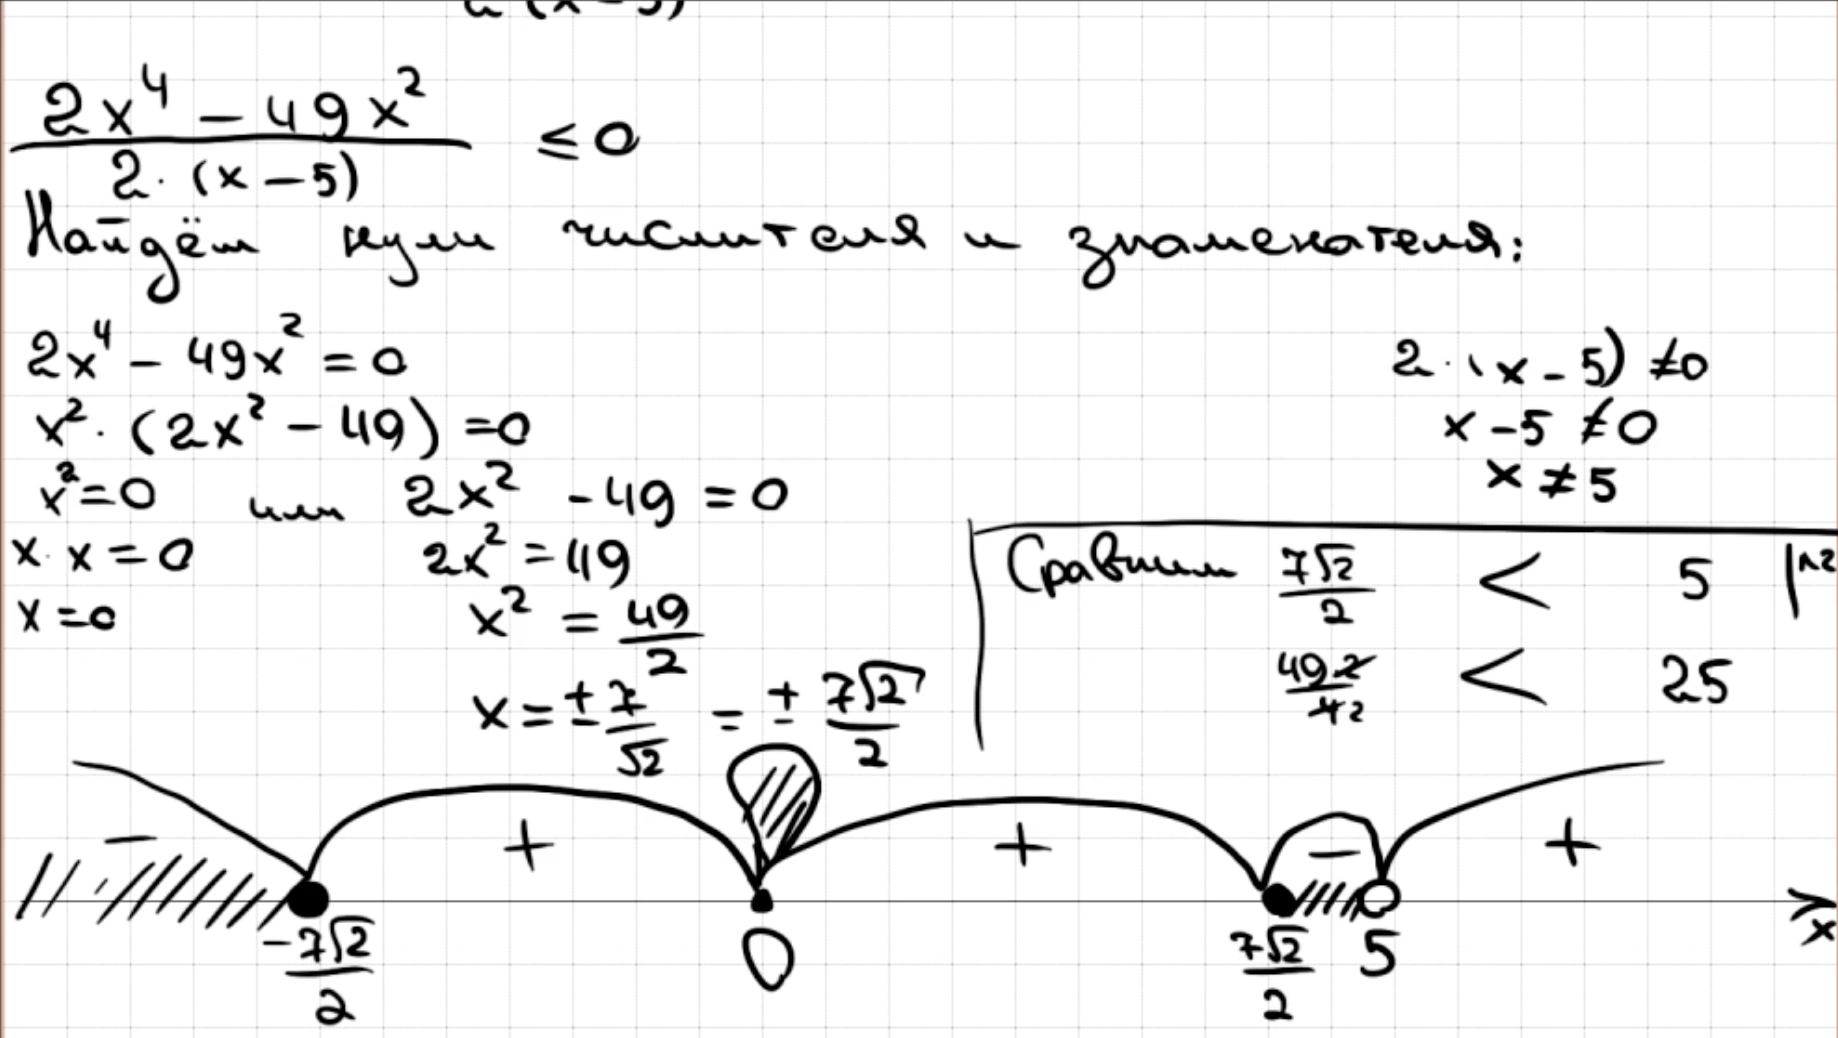 2x⁴ − 49x² / 2·(x − 5) ≤ 0
Найдём нули числителя и знаменателя:
2x⁴ − 49x² = 0
x²·(2x² − 49) = 0
x² = 0 или 2x² − 49 = 0
x·x = 0 2x² = 49
x = 0 x² = 49/2
x = ± 7/√2 = ± 7√2/2
2·(x − 5) ≠ 0
x − 5 ≠ 0
x ≠ 5
Сравним 7√2/2 < 5 |^2
49·2/42 < 25
− + + − +
−7√2/2 0 7√2/2 5 x